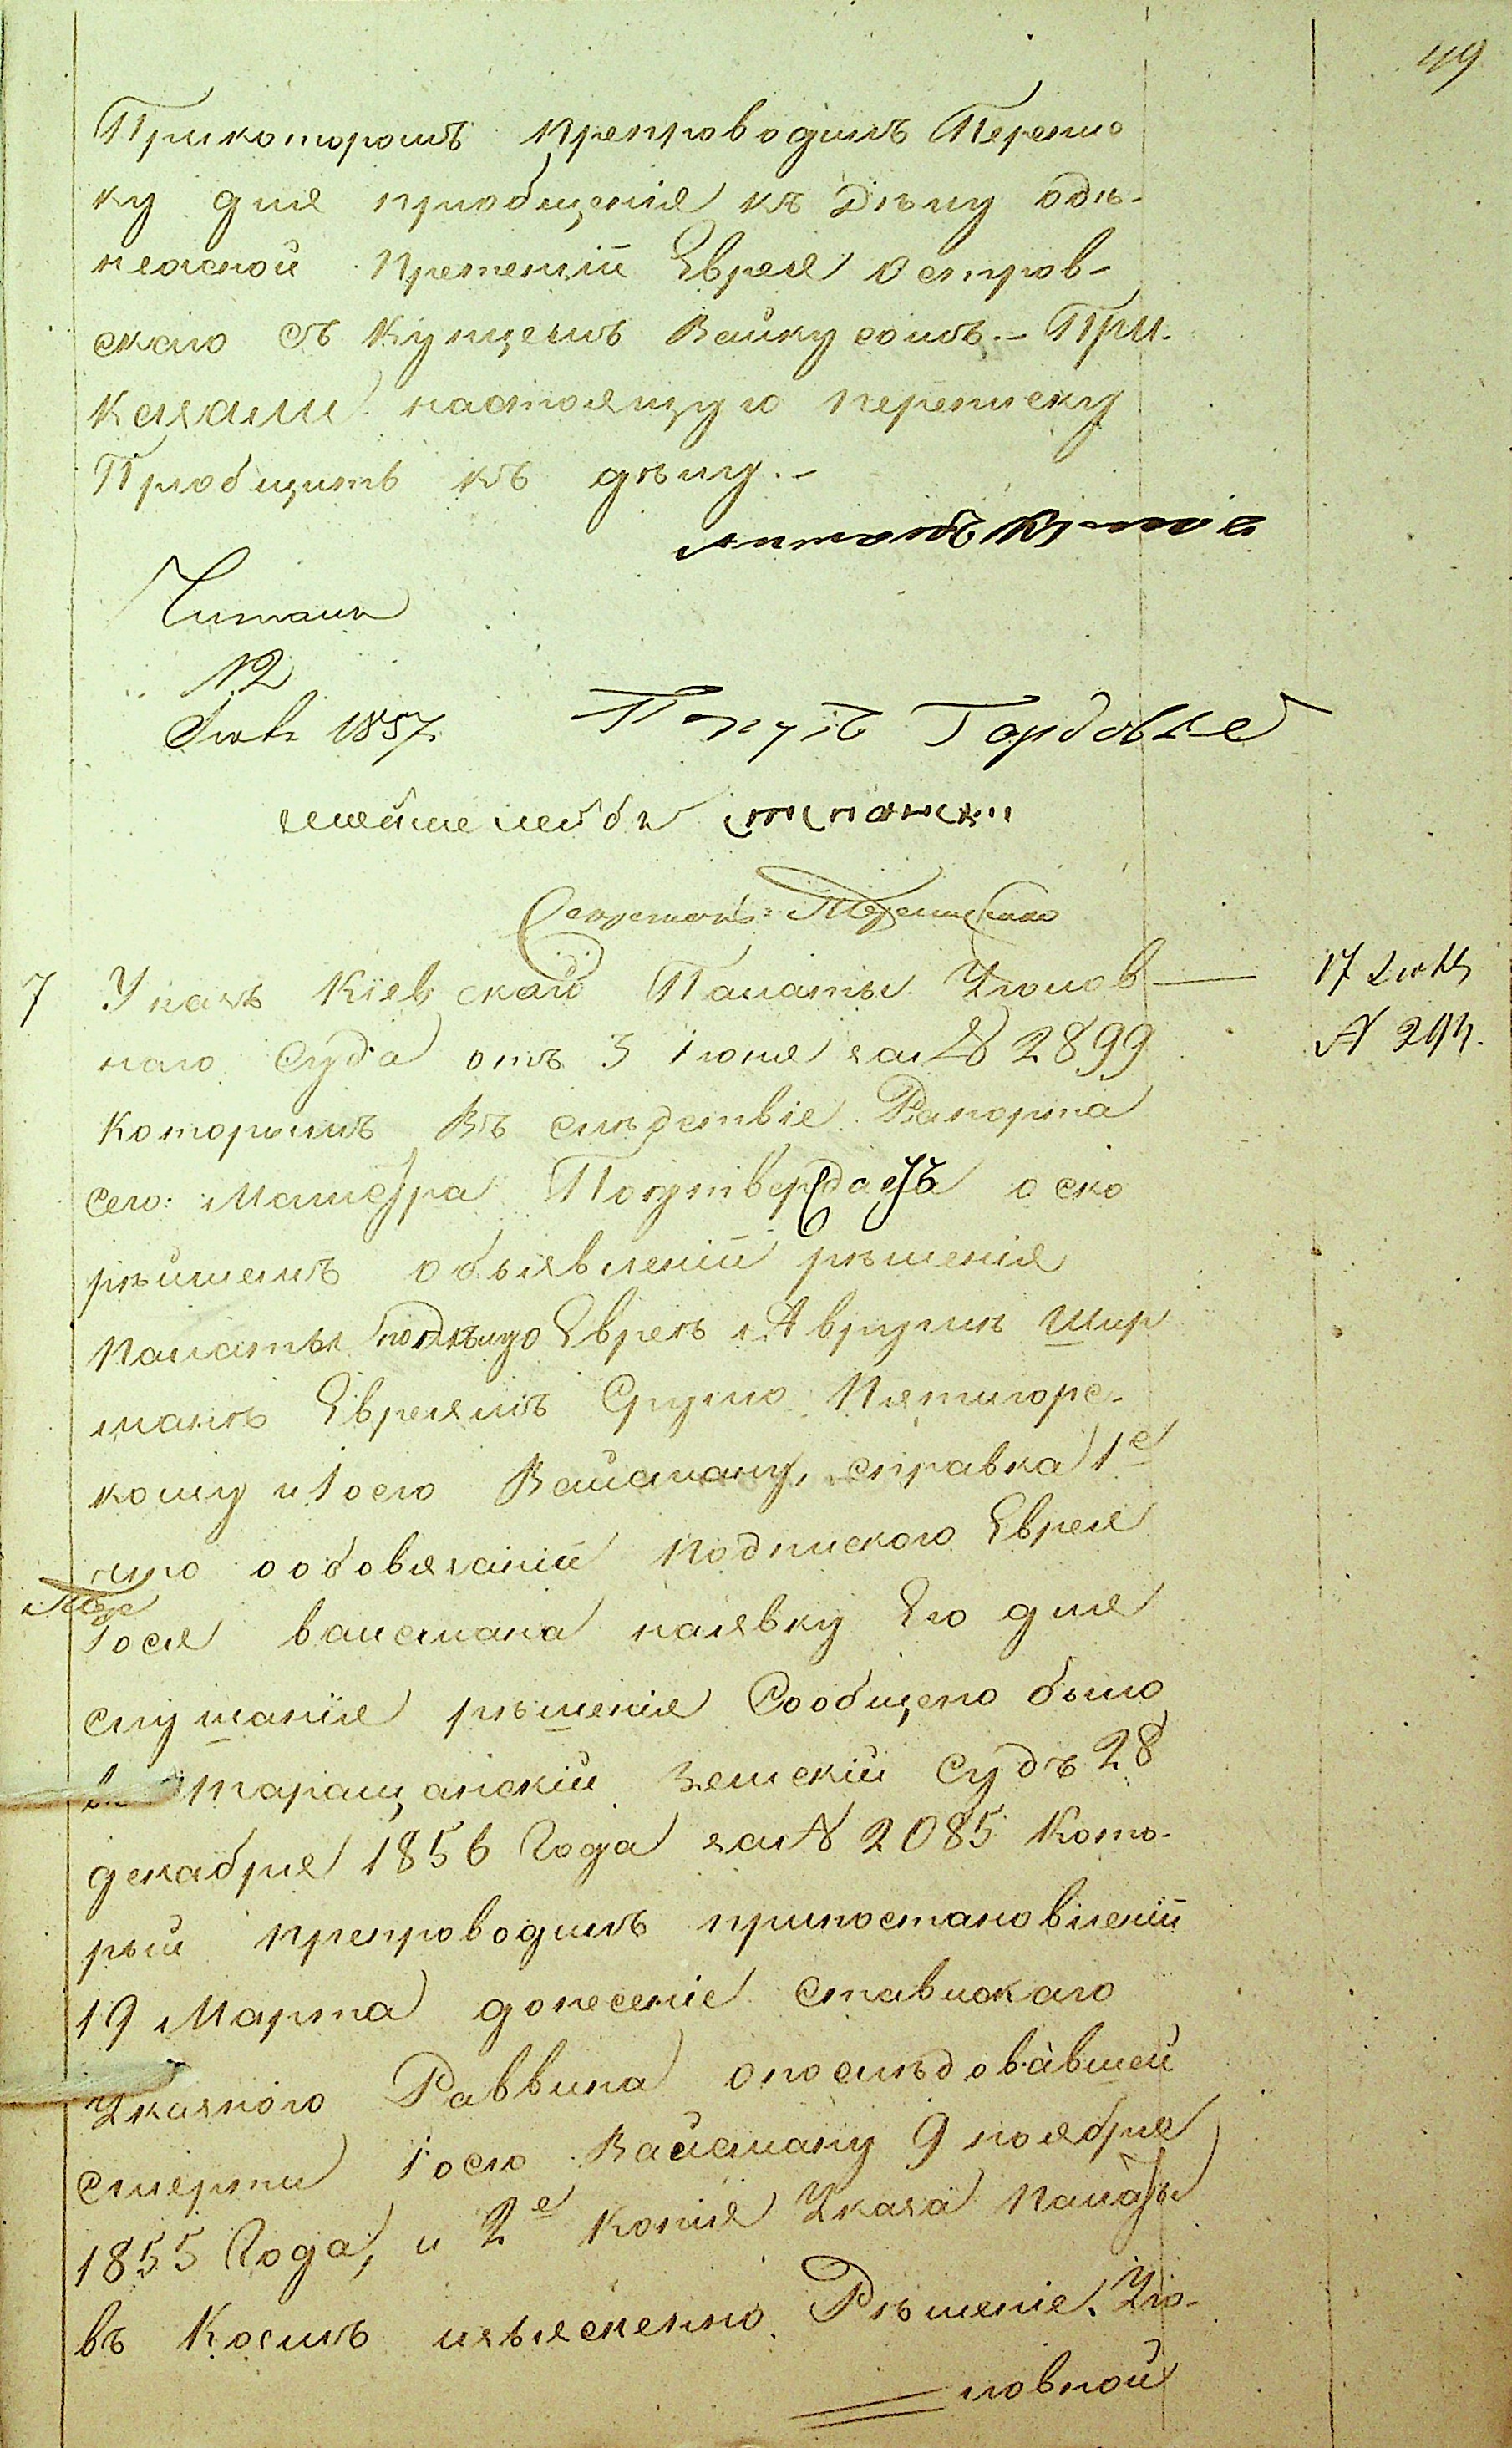 49
Прикоторомъ препроводилъ Перепис
ку для пріобщенія къ Дѣлу одѣ-
нежной претензіи Еврея Остров-
скаго съ купцемъ Вайнусомъ.- При-
казали настоящую переписку
Пріобщить къ дѣлу.-
Антонъ
Читалъ
12
Іюля 1857.
лейбъ
Секретарь
7 Указъ Кіевскаго Палаты Уголов- 17 Іюля
наго Суда отъ 3 Іюня за № 2899 № 294.
которымъ въ слѣдствіе Рапорта
сего: Магистра Подтверждаетъ о ско
рѣйшемъ объявленіи рѣшенія
палаты подѣлу о Евреѣ Аврумѣ Шир
манъ Евреямъ Срулю Пятигорс-
кому и Іосю Вайсману, справка 1е
что о обовязаніи подпискою Еврея
Іося Вайсмана наявку Его для
слушанія рѣшенія Сообщено было
въ Таращанскій Земскій Судъ 28
декабря 1856 Года за № 2085 Кото-
рый препроводилъ припостановленіи
19 Марта донесеніе Ставискаго
Указного Раввина опослѣдовавшей
смерти Іосю Вайсману 9 ноября
1855 Года, и 2е копія Указа Палаты
въ Коемъ изъясненно Рѣшеніе. Уго-
ловной